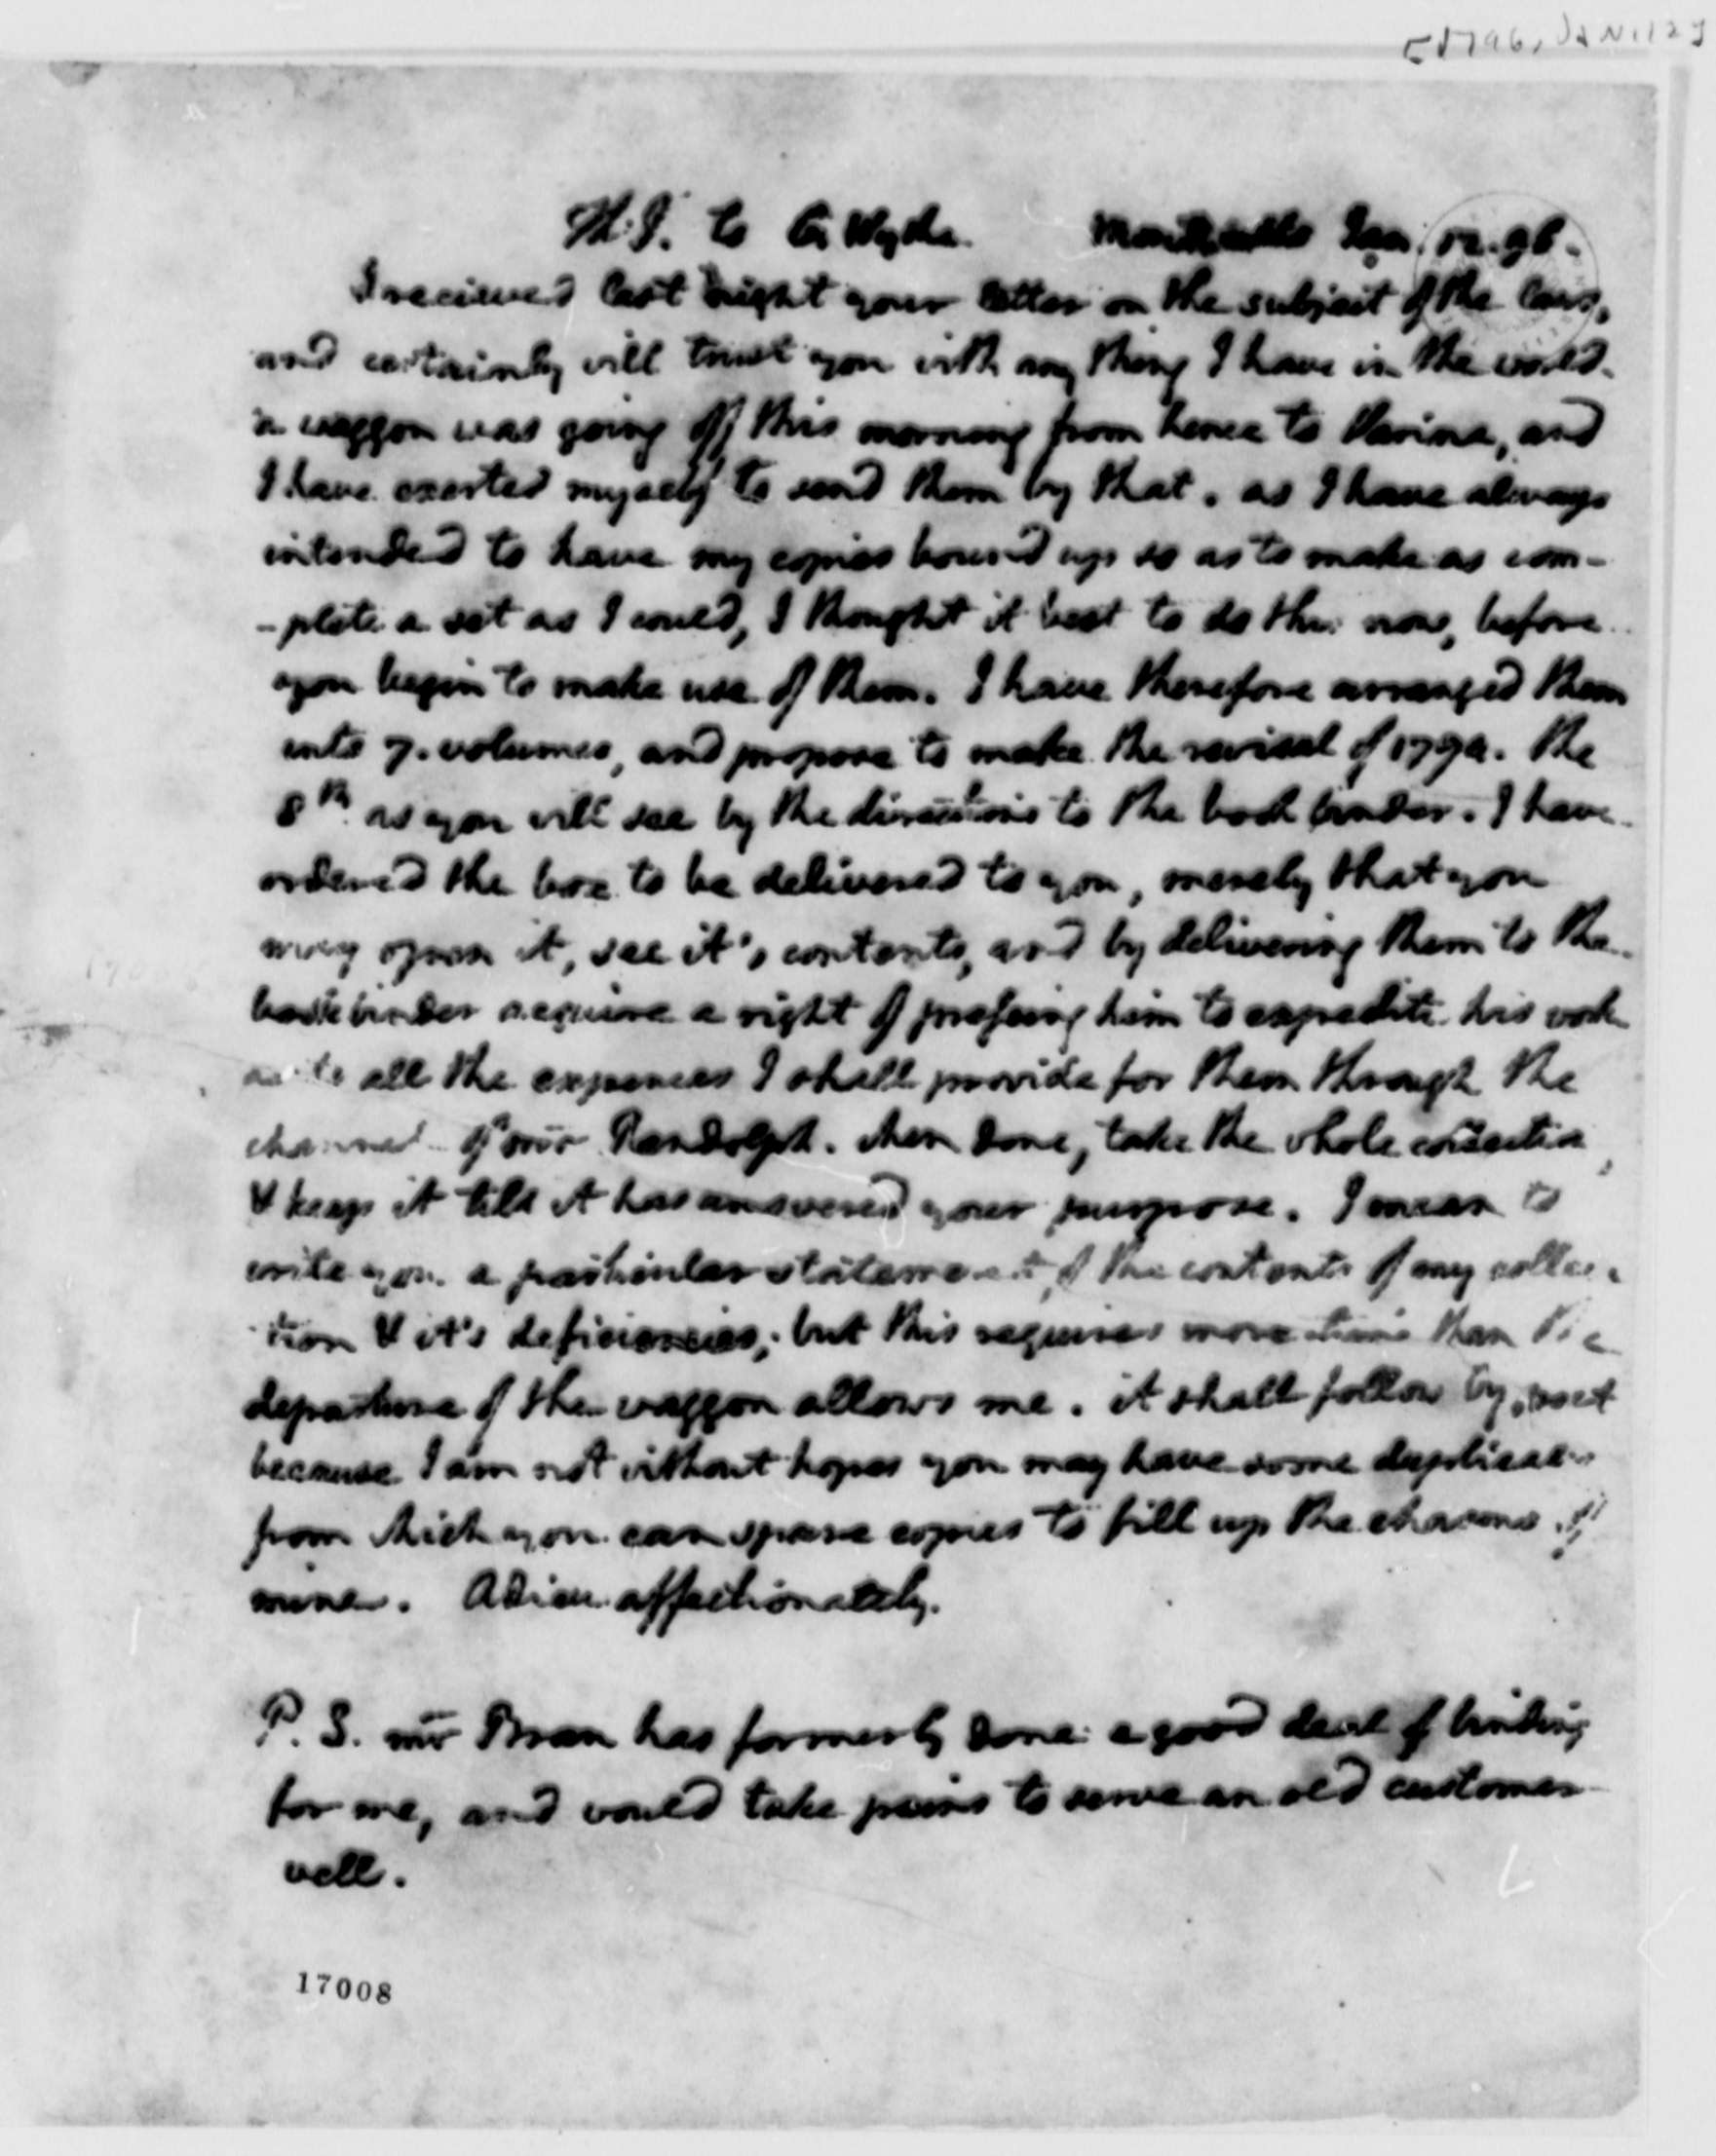 [1796, JAN. 12]
Th: J. to G. Wythe. Monticello Jan. 12. 96.
I recieved last night your letter on the subject of the laws,
and certainly will trust you with any thing I have in the world.
a waggon was going off this morning from hence to Varina, and
I have exerted myself to send them by that. as I have always
intended to have my copies bound up so as to make as com-
-plete a set as I could, I thought it best to do this now, before
you begin to make use of them. I have therefore arranged them
into 7. volumes, and propose to make the revisal of 1794. the
8th. as you will see by the directions to the bookbinder. I have
ordered the box to be delivered to you, merely that you
may open it, see it's contents, and by delivering them to the
bookbinder acquire a right of pressing him to expedite his work
as to all the expences I shall provide for them through the
channel of mr Randolph. when done, take the whole collection
& keep it till it has answered your purpose. I mean to
write you a particular statement of the contents of my collec-
tion & it's deficiencies; but this requires more time than the
departure of the waggon allows me. it shall follow by post
because I am not without hopes you may have some duplicates
from which you can spare copies to fill up the chasms of
mine. Adieu affectionately.
P. S. mr Bran has formerly done a good deal of binding
for me, and would take pains to serve an old customer
well.
17008